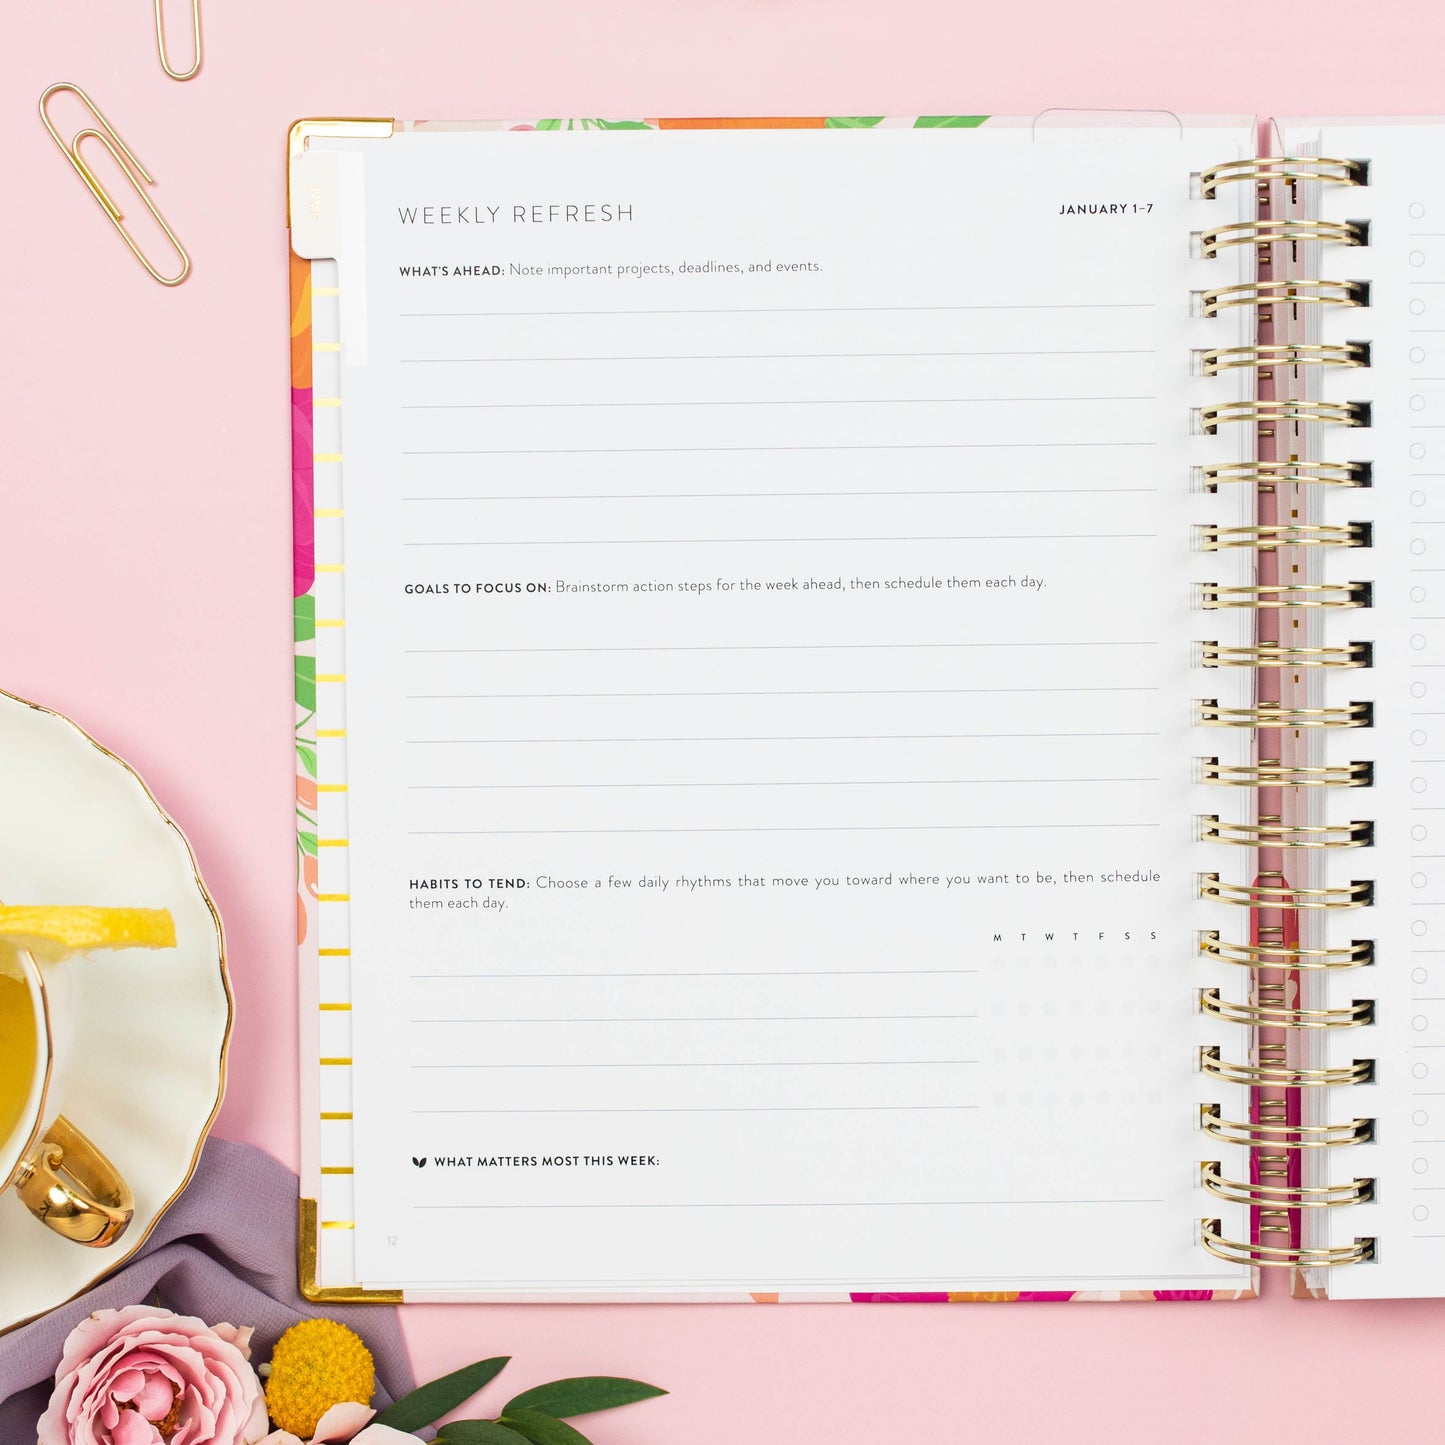 JAN
WEEKLY REFRESH
JANUARY 1–7
WHAT'S AHEAD: Note important projects, deadlines, and events.
GOALS TO FOCUS ON: Brainstorm action steps for the week ahead, then schedule them each day.
HABITS TO TEND: Choose a few daily rhythms that move you toward where you want to be, then schedule
them each day.
M T W T F S S
WHAT MATTERS MOST THIS WEEK:
12